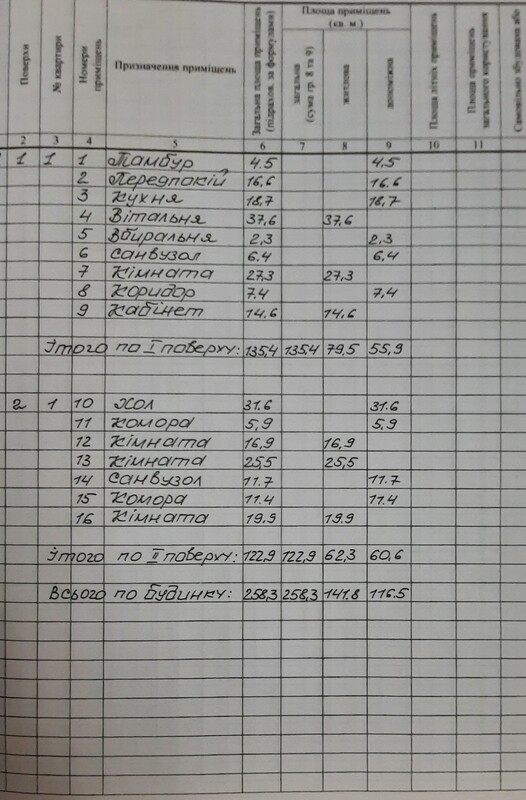 Поверхи
№ квартири
Номери приміщень
Призначення приміщень
Загальна площа приміщень (підрахов. за формулами)
Площа приміщень (кв. м.)
загальна (сума гр. 8 та 9)
житлова
допоміжна
Площа літніх приміщень
Площа приміщень загального користування
Самовільно збудована або
2 3 4 5 6 7 8 9 10 11
1 1 1 Тамбур 4.5 4.5
2 Передпокій 16,6 16.6
3 Кухня 18,7 18,7
4 Вітальня 37,6 37,6
5 Вбиральня 2,3 2,3
6 Санвузол 6.4 6,4
7 Кімната 27,3 27,3
8 Коридор 7.4 7,4
9 Кабінет 14.6 14,6
Ітого по I поверху: 135,4 135.4 79,5 55,9
2 1 10 Хол 31.6 31.6
11 Комора 5,9 5,9
12 Кімната 16,9 16,9
13 Кімната 25,5 25,5
14 Санвузол 11.7 11.7
15 Комора 11.4 11.4
16 Кімната 19.9 19.9
Ітого по II поверху: 122,9 122,9 62,3 60,6
Всього по будинку: 258,3 258,3 141.8 116.5